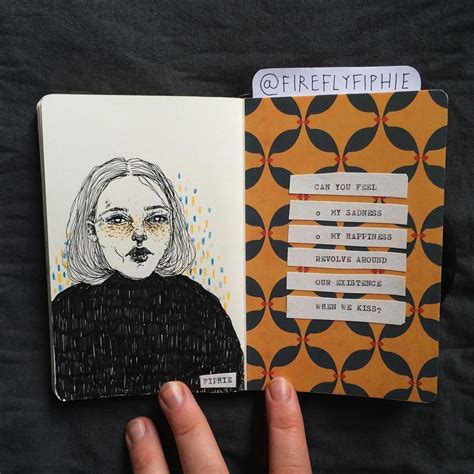 @FIREFLYFIPHIE
FIPHIE
CAN YOU FEEL
o MY SADNESS
o MY HAPPINESS
REVOLVE AROUND
OUR EXISTENCE
WHEN WE KISS?